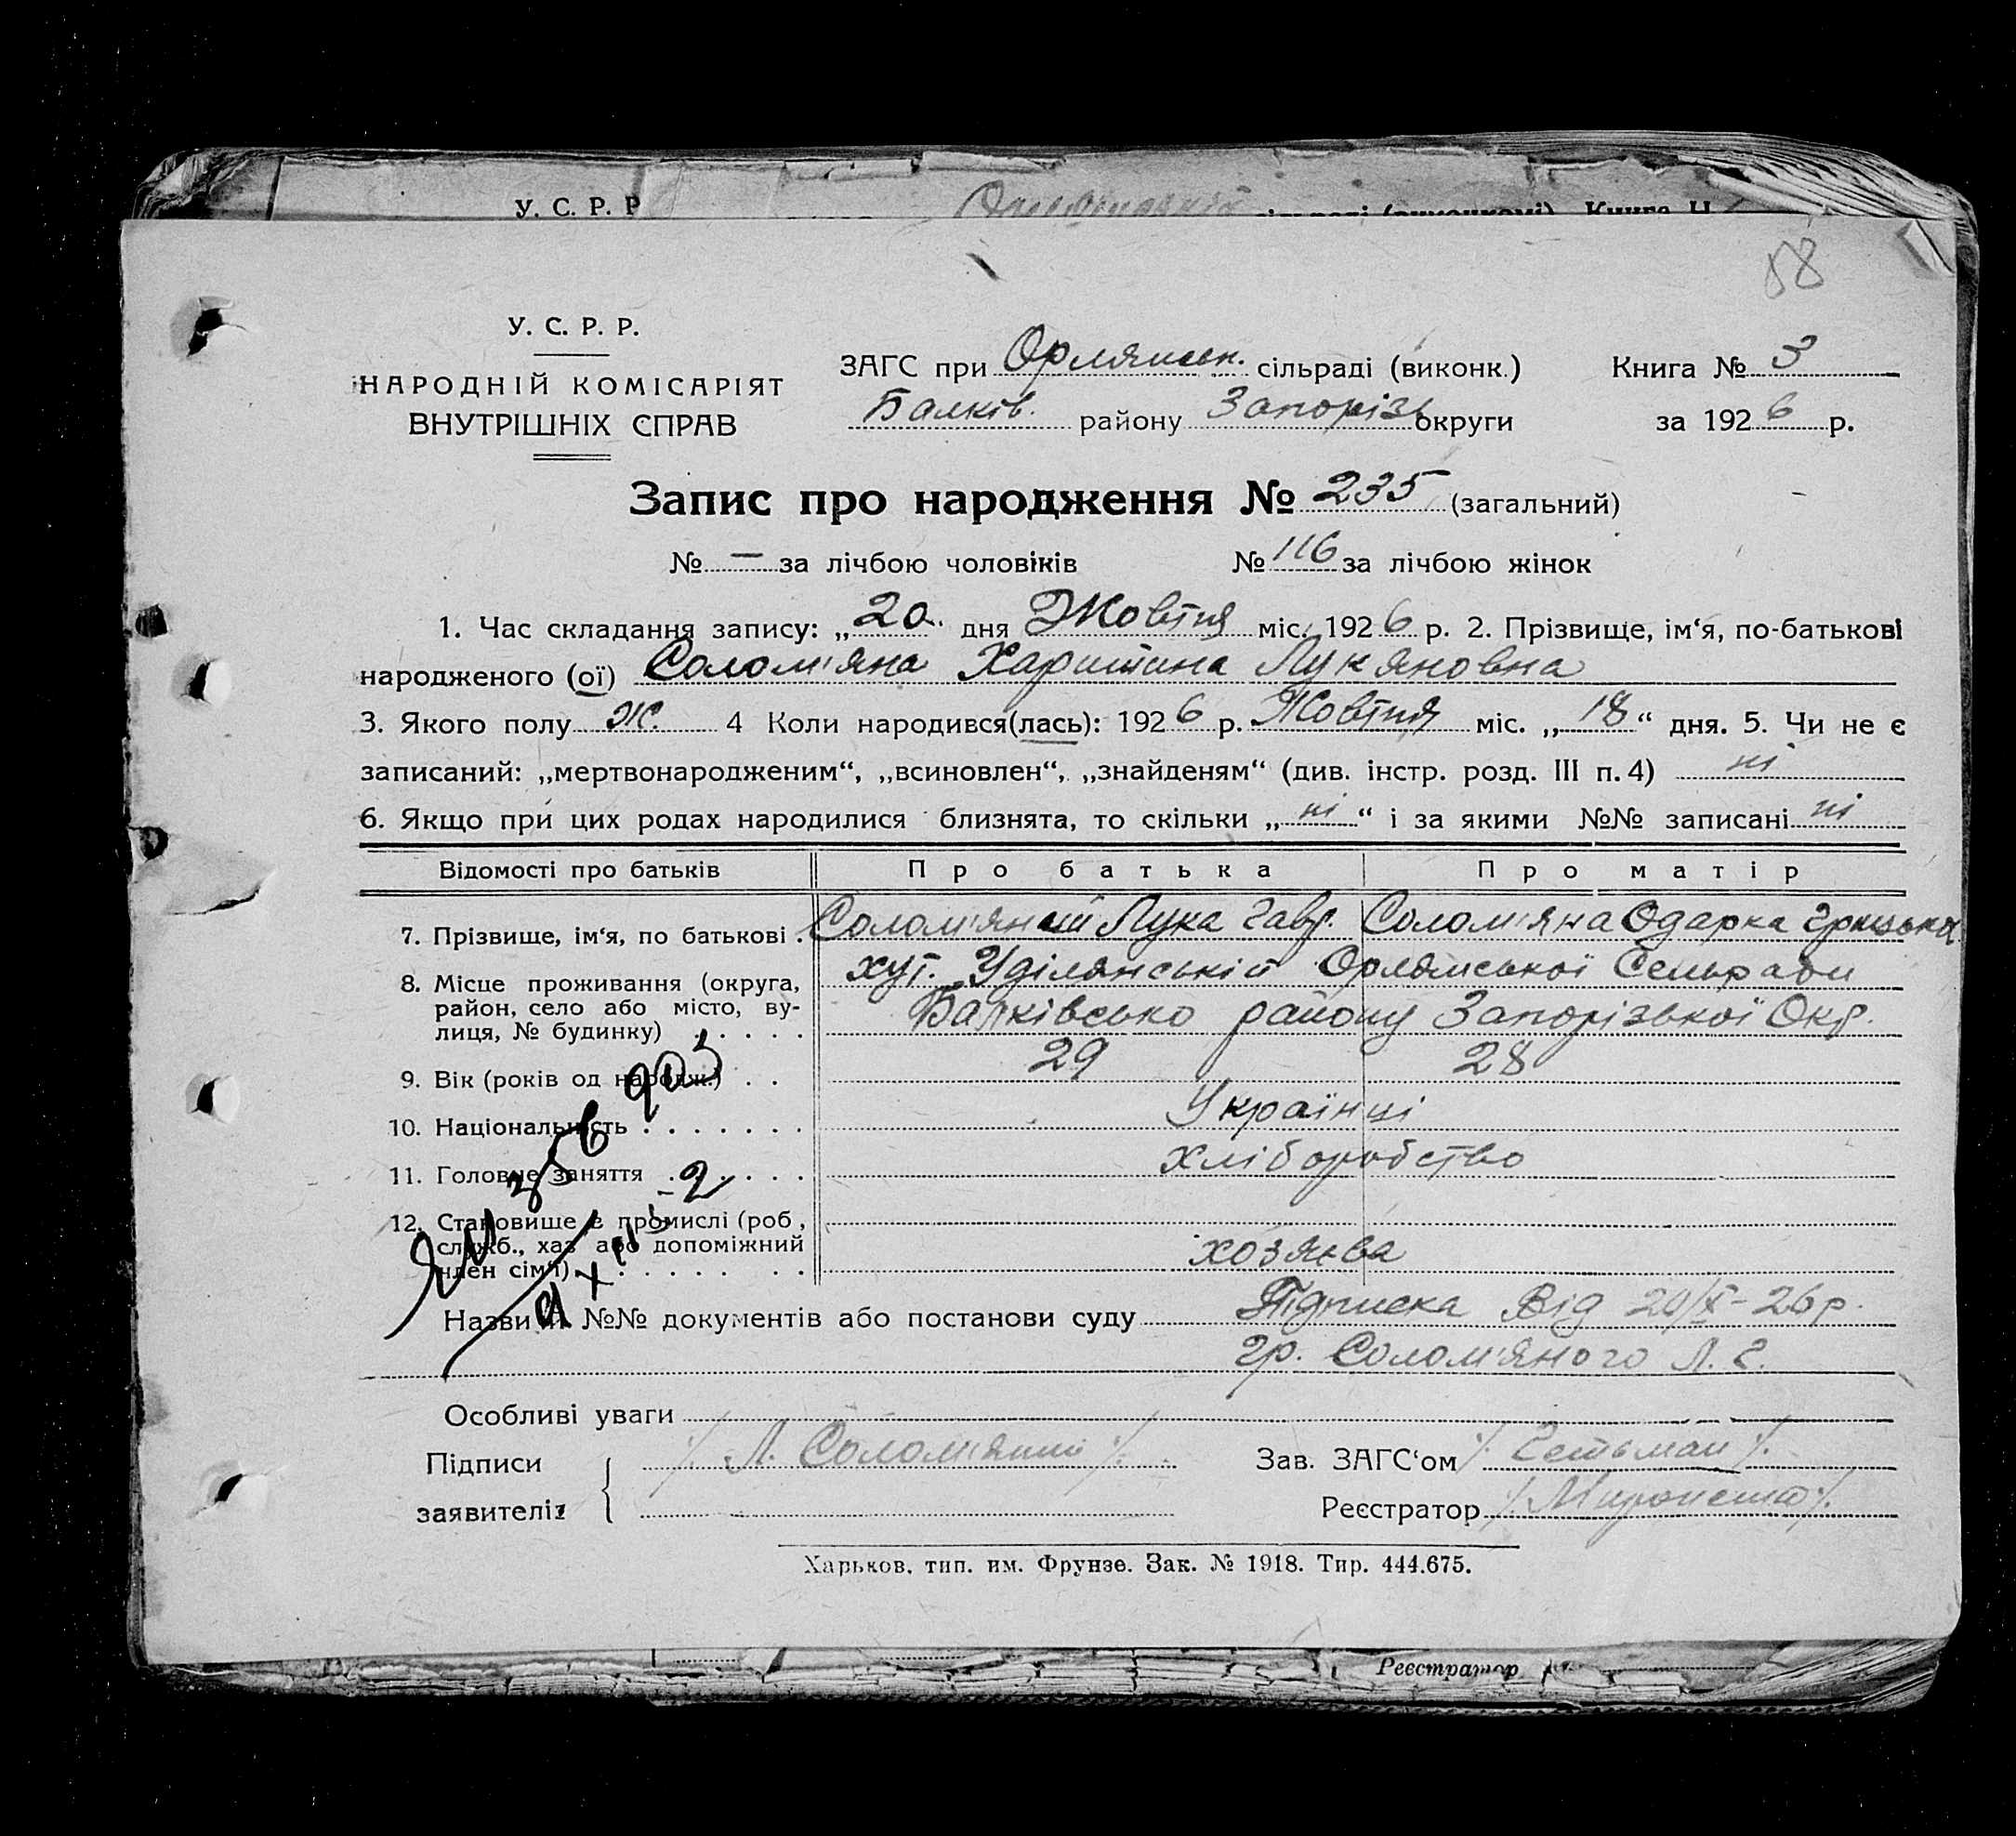 У. С. Р. Р
58
У. С. Р. Р.
НАРОДНІЙ КОМІСАРІЯТ
ВНУТРІШНІХ СПРАВ
ЗАГС при Орлянськ. сільраді (виконк.) Книга № 3
Балків. району Запорізь округи за 1926 р.
Запис про народження № 235 (загальний)
№ — за лічбою чоловіків № 116 за лічбою жінок
1. Час складання запису: „20“ дня Жовтня міс. 1926 р. 2. Прізвище, ім‘я, по-батькові
народженого (ої) Солом'яна Харитина Лукяновна
3. Якого полу Ж. 4 Коли народився(лась): 1926 р. Жовтня міс. „18“ дня. 5. Чи не є
записаний: „мертвонародженим“, „всиновлен“, „знайденям“ (див. інстр. розд. III п. 4) ні
6. Якщо при цих родах народилися близнята, то скільки „ні“ і за якими №№ записані ні
Відомості про батьків Про батька Про матір
7. Прізвище, ім‘я, по батькові . Солом'яний Лука Гавр. Солом'яна Одарка Грицька
8. Місце проживання (округа, хут. Уділянській Орлянської Сельради
район, село або місто, ву-
лиця, № будинку) . . . . . Балківсько району Запорізької Окр.
9. Вік (років од народж.) . . 29 28
10. Національність . . . . . . . Українці
11. Головне заняття . . . . . . хліборобство
12. Становище в промислі (роб,
служб., хаз або допоміжний
член сім‘ї) . . . . . . . . хозяєва
Назви й №№ документів або постанови суду Підписка Від 20/X-26 р.
гр. Солом'яного Л. Г.
Особливі уваги
Підписи /. Л. Солом'яний /. Зав. ЗАГС‘ом /. Гетьман /.
заявителів Реєстратор
Харьков, тип. им. Фрунзе. Зак. № 1918. Тир. 444.675.
Реєстратор